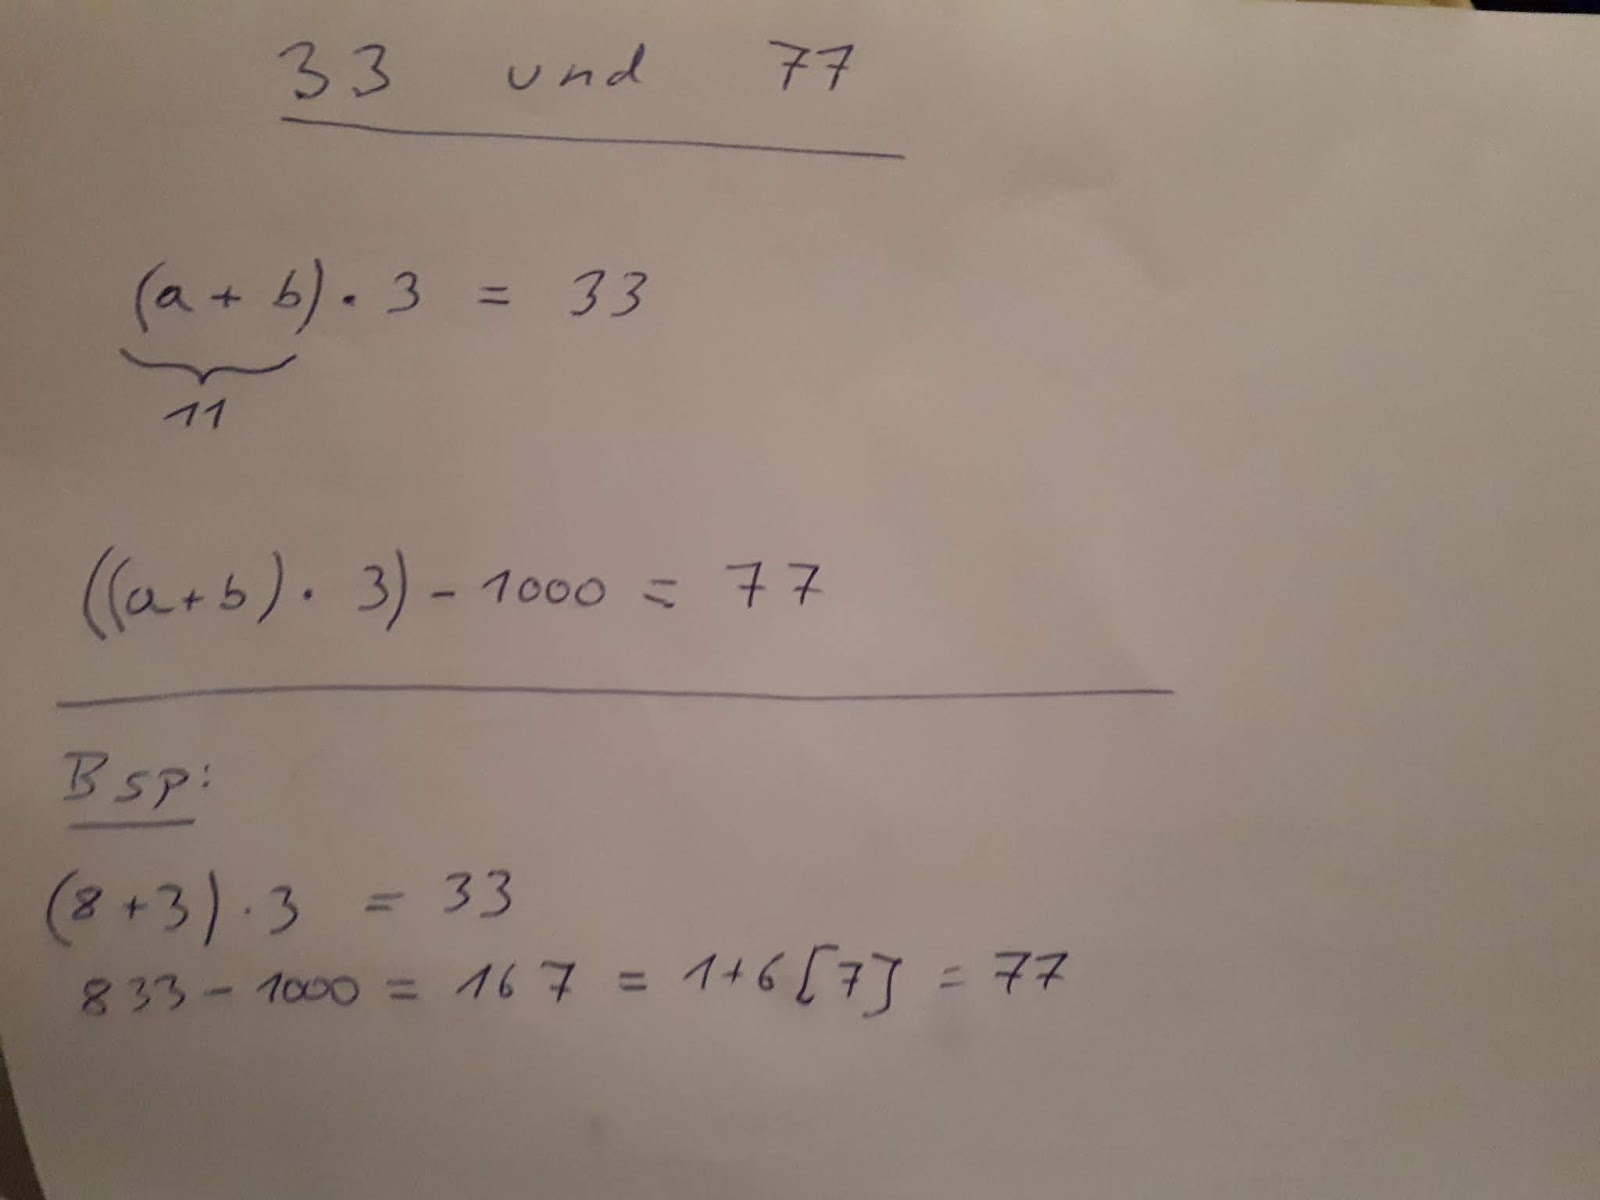 33 und 77
(a + b) · 3 = 33
11
((a+b) · 3) - 1000 = 77
Bsp:
(8+3) · 3 = 33
833 - 1000 = 167 = 1+6[7] = 77